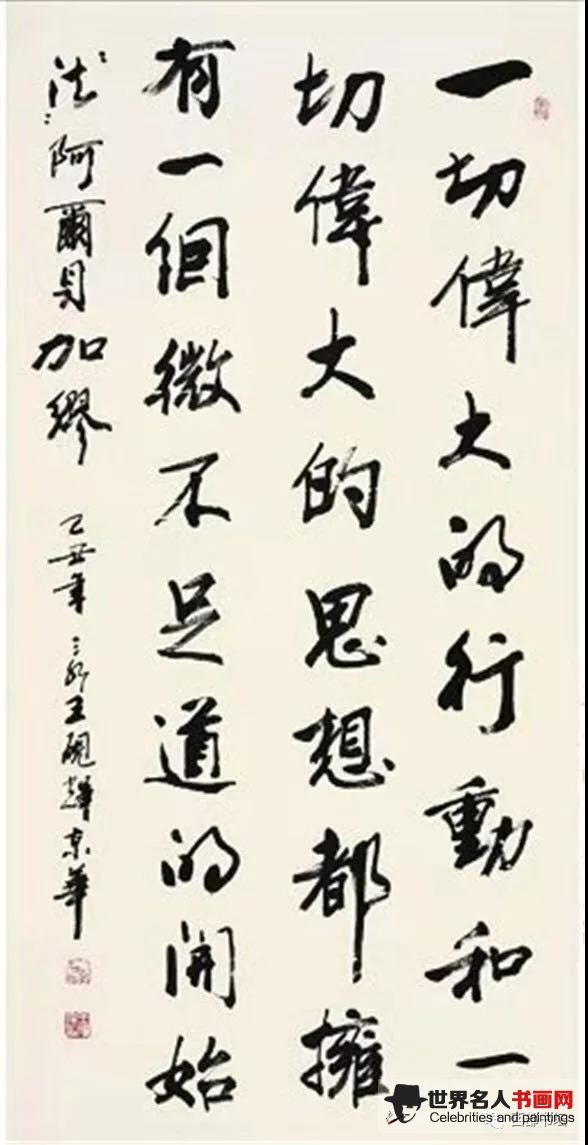 一切偉大的行動和一
切偉大的思想都擁
有一個微不足道的開始
法阿爾貝加繆 己丑年 王硯輝京華
世界名人书画网
Celebrities and paintings